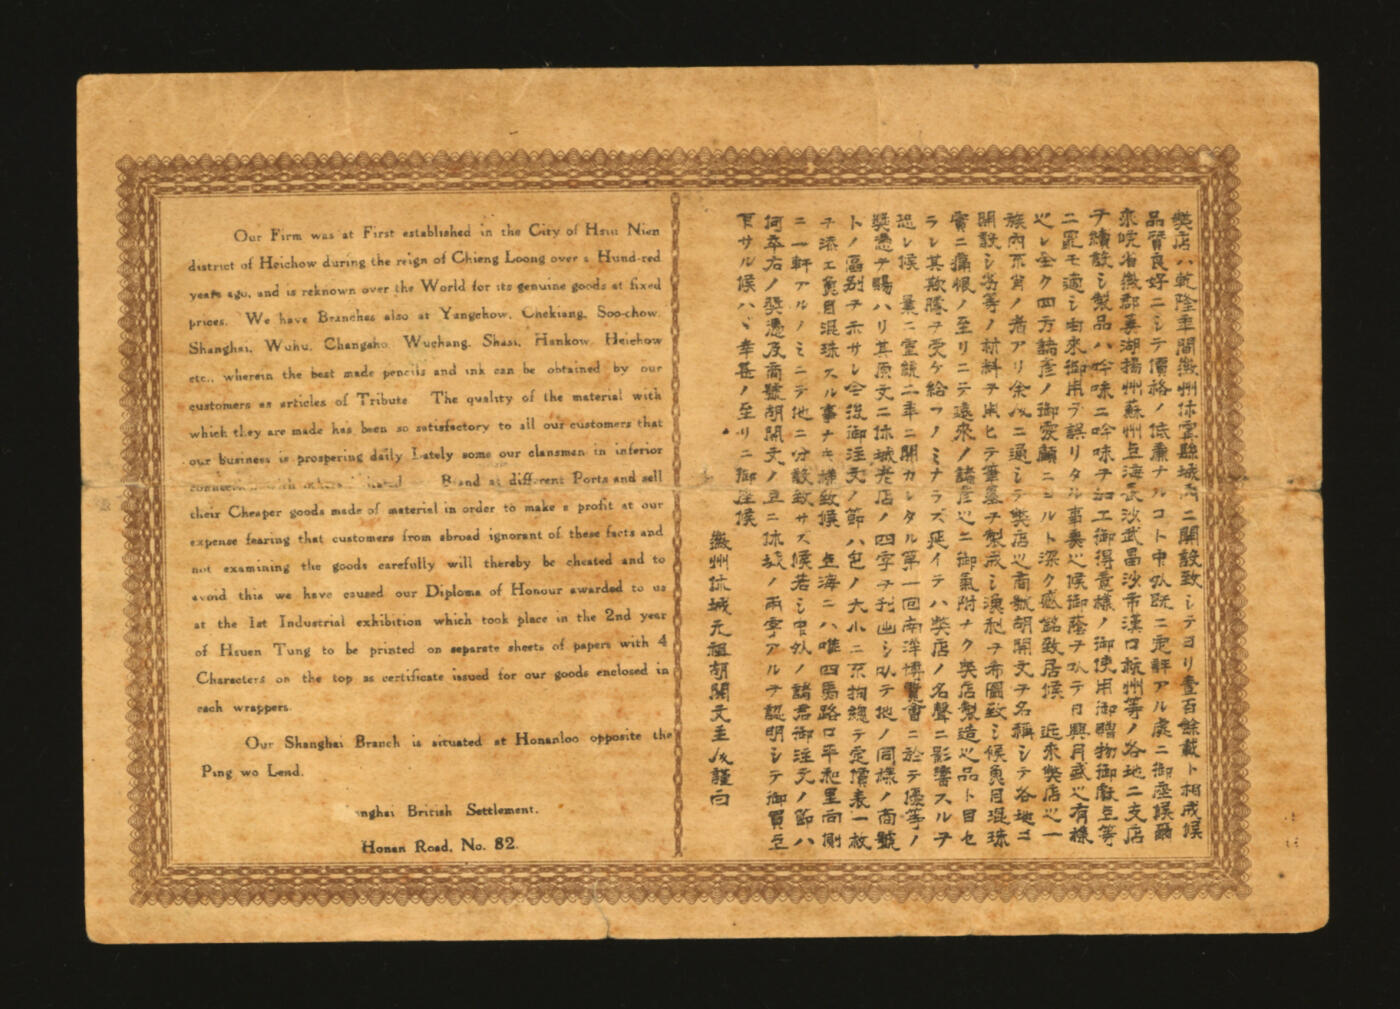 Our Firm was at First established in the City of Hsiu Nien
district of Heichow during the reign of Chieng Loong over a Hund-red
years ago, and is reknown over the World for its genuine goods at fixed
prices. We have Branches also at Yangchow, Chekiang, Soo-chow.
Shanghai, Wuhu, Changsho, Wuchang, Shasi, Hankow, Heichow
etc., wherein the best made pencils and ink can be obtained by our
customers as articles of Tribute The quality of the material with
which they are made has been so satisfactory to all our customers that
our business is prospering daily Lately some our clansmen in inferior
with Brand at different Ports and sell
their Cheaper goods made of material in order to make a profit at our
expense fearing that customers from abroad ignorant of these facts and
not examining the goods carefully will thereby be cheated and to
avoid this we have caused our Diploma of Honour awarded to us
at the 1st Industrial exhibition which took place in the 2nd year
of Hsuen Tung to be printed on separate sheets of papers with 4
Characters on the top as certificate issued for our goods enclosed in
each wrappers.
Our Shanghai Branch is situated at Honanloo opposite the
Ping wo Lend.
nghai British Settlement.
Honan Road, No. 82.
弊店ハ乾隆年間徽州休寧縣城內ニ開設致シテヨリ壹百餘載ト相成候
品質良好ニシテ價格ノ低廉ナルコト中外既ニ定評アル處ニ御座候爾
來皖省徽郡蕪湖揚州蘇州上海長沙武昌沙市漢口杭州等ノ各地ニ支店
ヲ續設シ製品ハ吟味ニ吟味ヲ加工御得意樣ノ御使用御贈物御獻上等
ニ寔モ適シ由來御用ヲ誤リタル事無之候御蔭ヲ以テ日興月盛之有樣
之レ全ク四方諸彥ノ御愛顧ニヨルト深ク感銘致居候 近來弊店之一
族內不肖ノ者アリ余々ニ過シテ弊店之商號胡開文ヲ名稱シテ各地ニ
開設シ劣等ノ材料ヲ用ヒテ筆墨ヲ製成シ漁利ヲ希圖致シ候魚目混珠
實ニ痛恨ノ至リニテ遠來ノ諸彥之ニ御氣附ナク弊店製造之品ト目セ
ラレ其欺騰ヲ受ケ給フノミナラズ延イテハ弊店ノ名聲ニ影響スルヲ
恐レ候 茲ニ宣統二年ニ開カレタル第一回南洋博覽會ニ於テ優等ノ
獎憑ヲ賜ハリ其原文ニ休城老店ノ四字ヲ刊出シ以テ他ノ同樣ノ商號
トノ區別ヲ示サレ今後御注文ノ節ハ包ノ大小ニ不拘總テ定價表一枚
ヲ添エ魚目混珠スル事ナキ樣致候 上海ニハ唯四馬路口平和里向側
ニ一軒アルノミニテ他ニ分設致サズ候若シ中外ノ諸君御注文ノ節ハ
何卒右ノ獎憑及商號胡開文ノ上ニ休城ノ兩字アルヲ認明シテ御買上
下サル候ハヾ幸甚ノ至リニ御座候
徽州休城元祖胡開文主人謹白